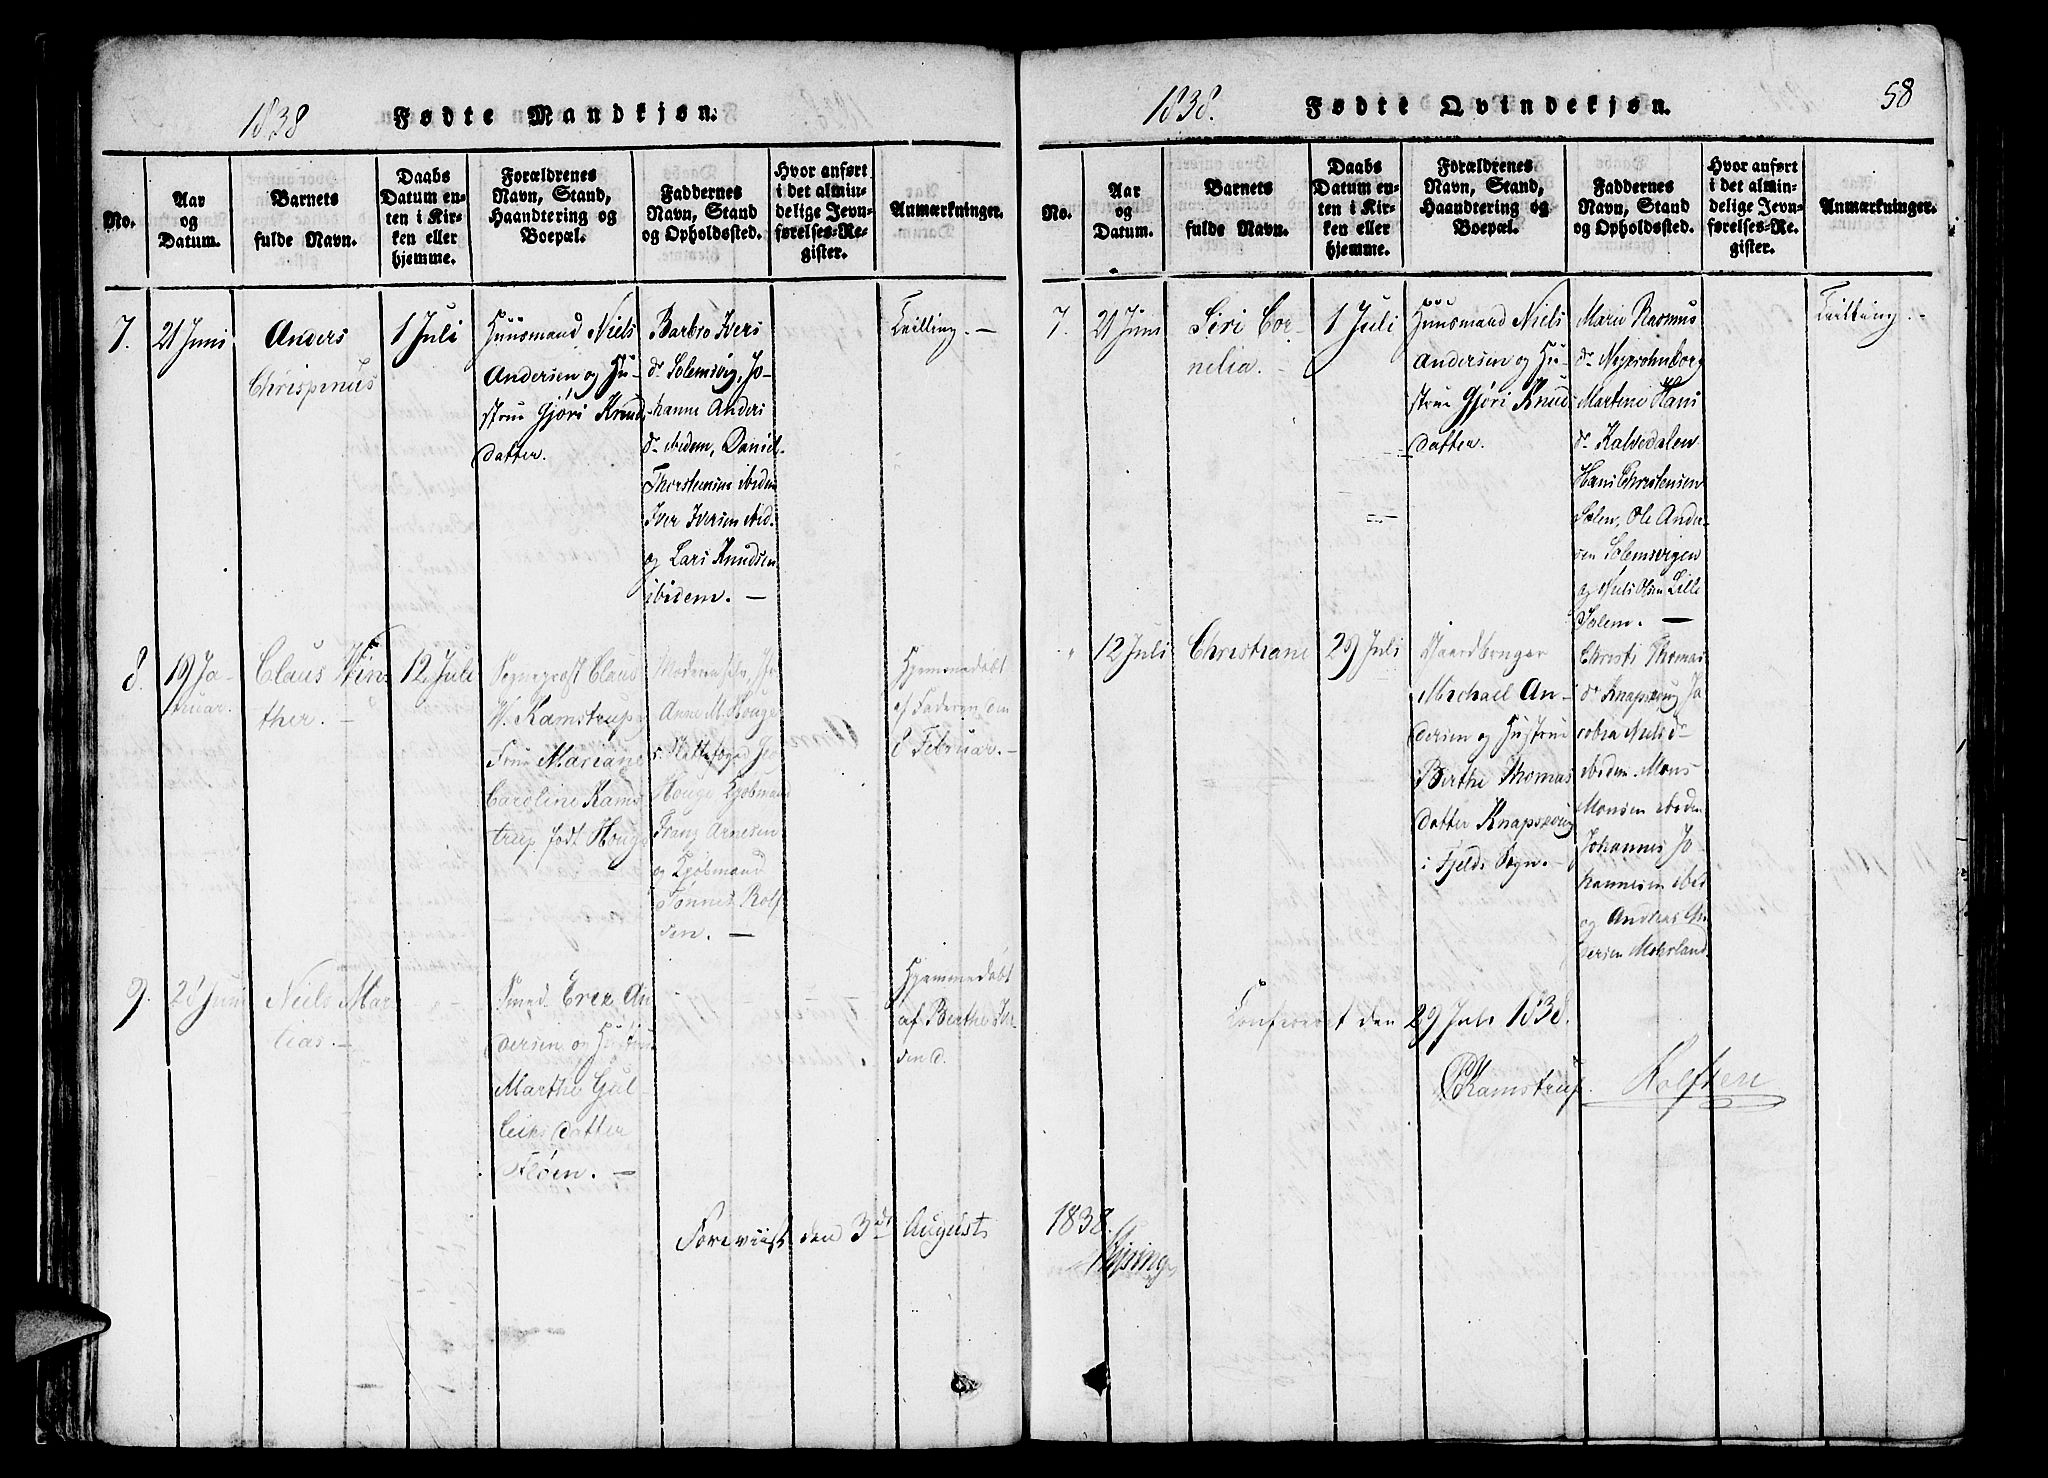 1838 Fødte Mandkjøn.
No.
Aar
og
Datum.
Barnets
fulde Navn.
Daabs
Datum en-
ten i Kir-
ken eller
hjemme.
Forældrenes
Navn, Stand,
Haandtering og
Boepæl.
Faddernes
Navn, Stand
og Opholdssted.
Hvor anført
i det almin-
delige Jevn-
førelses-Re-
gister.
Anmærkninger.
7.
21 Juni
Anders
Chrispinus
1 Juli
Huusmand Niels
Andersen og Hu-
strue Gjøri Knuds
datter.
Barbro Ivers
dr Solemsvig, Jo-
hanne Anders
dr ibidem, Daniel
Thorstensen ibidem
Iver Iversen ibid.
og Lars Knudsen
ibidem. —
Tvilling. —
8.
19 Ja-
nuar.
Claus Win-
ther. —
12 Juli
Sognepræst Claus
W. Kamstrup
Frue Mariane
Caroline Kams
trup født Houge
Moderen selv,
Anne M. Houge
Houge Kjøbmand
Franz Arnesen
og Kjøbmand
Tønnes Rolf
sen. —
Hjemmedøbt
af Faderen den
8 Februar. —
9.
28 Juni
Niels Mar-
tias. —
Smed Erik An
dersen og Hustrue
Marthe Gul-
leiks datter
Fløen. —
Hjemmedøbt
af Berthe Iver
sen d.
Foreviist den 3die August
1838. Fødte Qvindekjøn. 58
No.
Aar
og
Datum.
Barnets
fulde Navn.
Daabs
Datum en-
ten i Kir-
ken eller
hjemme.
Forældrenes
Navn, Stand,
Haandtering og
Boepæl.
Faddernes
Navn, Stand
og Opholdssted.
Hvor anført
i det almin-
delige Jevn-
førelses-Re-
gister.
Anmærkninger.
7.
21 Juni
Siri Cor-
nelia. —
1 Juli
Huusmand Niels
Andersen og Hu-
strue Gjøri Knuds
datter.
Marie Rasmus
dr Nygrohnborg
Martine Hans
dr Kalvedalen
Hans Christensen
Solem, Ole Ander-
sen Solemsvigen
og Niels Olsen Lille
Solem. —
Tvilling. —
"
12 Juli
Christiane
29 Juli
Gaardbruger
Michael An-
dersen og Hustrue
Birthe Thomas
datter Knapskoug
i Fjelds Sogn. —
Christi Thomas
dr Knapskoug Ja
cobia Niels dr
ibidem. Mons
Monsen ibidem
Johannes Jo
hannesen ibid
og Andreas An
dersen Mohrland.
Confereret den 29 Juli 1838.
CWKamstrup. Rolfsen
1838.